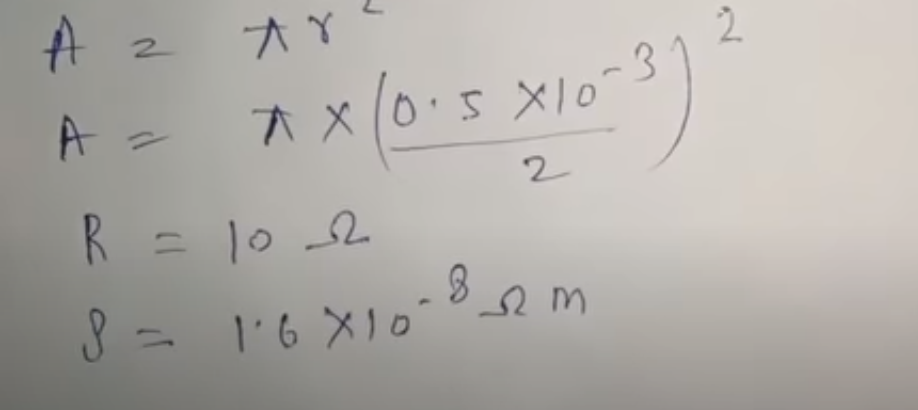 A = πr²
A = π × (0.5 × 10⁻³ / 2)²
R = 10 Ω
ρ = 1.6 × 10⁻⁸ Ω m